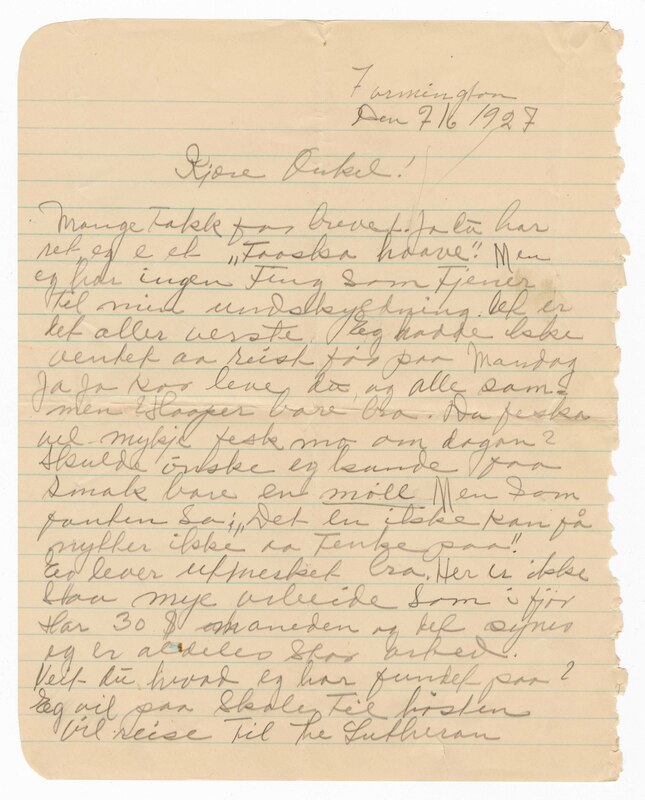 Farmington
Den 7/6 1927
Kjære Onkel!
Mange Takk for brevet. Ja du har
ret eg e et „Faaska haave". Men
eg har ingen Ting som Tjener
til min undskyldning. Det er
det aller verste. Eg hadde ikke
ventet aa reist før paa Mandag
Ja Ja kor leve du, og alle sam-
men? Haaper bare bra. Du feska
vel mykje fesk no om dagan?
Skulde ønske eg kunde faa
smak bare en møll Men som
fanten sa; „Det en ikke kan få
nytter ikke aa Tenke paa".
Eg lever utmerket bra. Her er ikke
saa mye arbeide som i fjor
Har 30 $ om maneden og det synes
eg er aldeles
Veit du hvad eg har fundet paa?
Eg vil paa Skole Til høsten
Vil reise Til The Lutheran